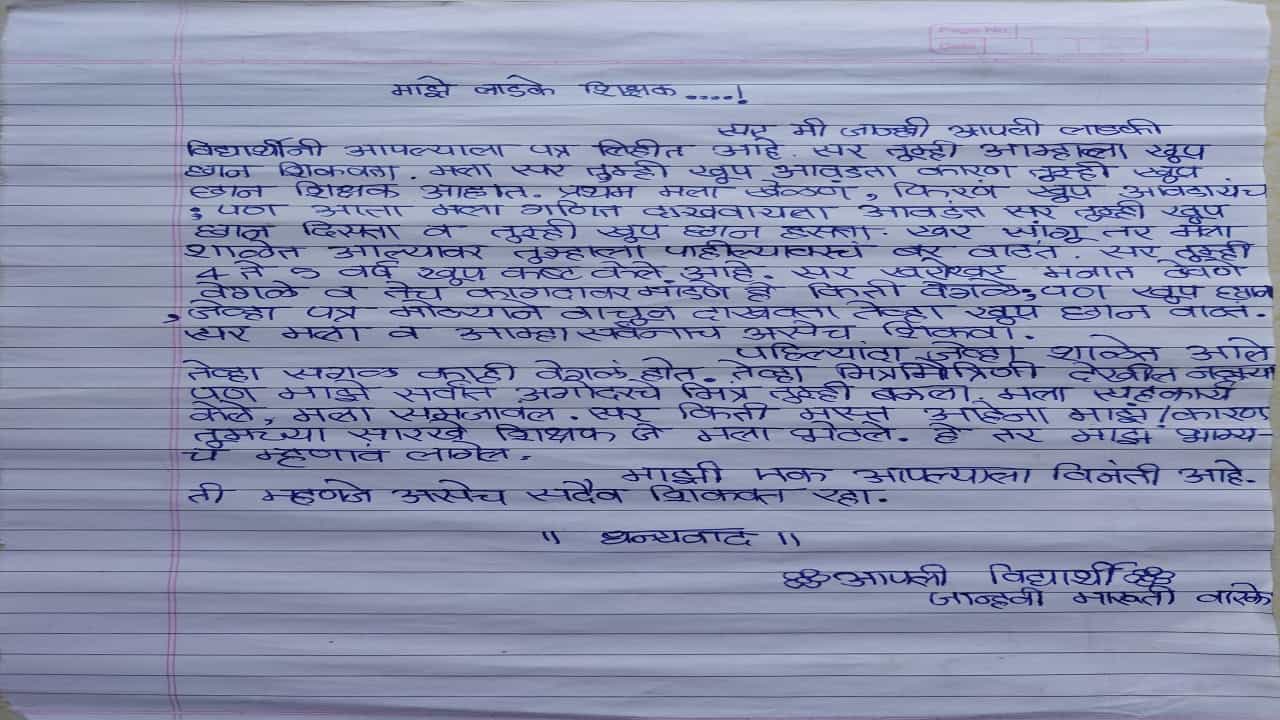 Page No.
Date
माझे लाडके शिक्षक ....!
सर मी जान्हवी आपली लाडकी
विद्यार्थीनी आपल्याला पत्र लिहीत आहे. सर तुम्ही आम्हाला खूप
छान शिकवता. मला सर तुम्ही खूप आवडता कारण तुम्ही खूप
छान शिक्षक आहात. प्रथम मला खेळणं, फिरणं खूप आवडायचं
; पण आता मला गणित आवडतं सर तुम्ही खूप
छान दिसता व तुम्ही खूप छान हसता. खरं सांगू तर मला
शाळेत आल्यावर तुम्हाला पाहील्यावरचं बरं वाटतं. सर तुम्ही
4 ते 5 वर्ष खूप कष्ट केले आहे. सर खरोखर मनात ठेवणं
वेगळे व तेच कागदावर मांडणे हे किती वेगळे; पण खूप छान
, जेव्हा पत्र मोठ्याने वाचून दाखवता तेव्हा खूप छान वाटतं.
सर मला व आम्हा सर्वांनाच असेच शिकवा.
पहिल्यांदा जेव्हा शाळेत आले
तेव्हा सगळं काही वेगळं होतं. तेव्हा मित्रमैत्रिणी देखील नव्हत्या
पण माझे सर्वात अगोदरचे मित्र तुम्ही बनला. मला सहकार्य
केले, मला समजावलं. सर किती मस्त आहेना माझं! कारण
तुमच्या सारखे शिक्षक जे मला भेटले. हे तर माझं भाग्य-
चं म्हणावं लागेल.
माझी एक आपल्याला विनंती आहे.
ती म्हणजे असेच सदैव शिकवत रहा.
॥ धन्यवाद ॥
आपली विद्यार्थी
जान्हवी मारूती वारके